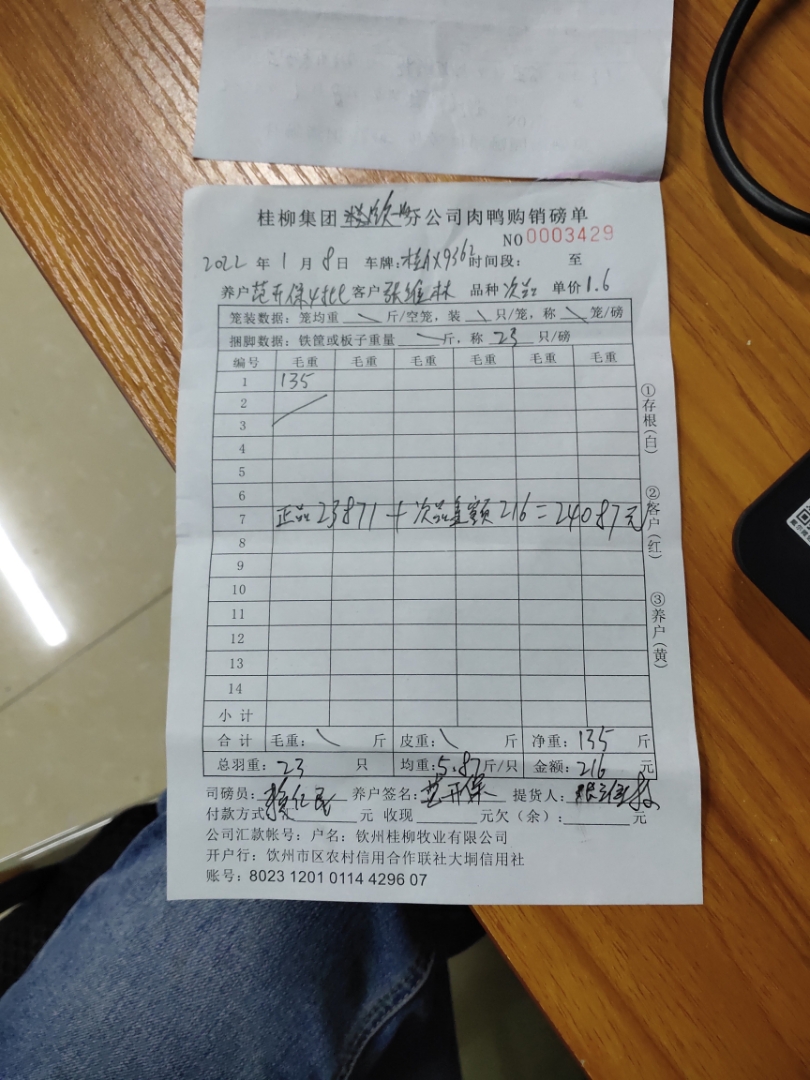 桂柳集团 分公司肉鸭购销磅单
NO 0003429
2022 年 1 月 8 日 车牌:桂AX9362 时间段: 至
养户 范开保4批 客户 张维林 品种 次品 单价 1.6
笼装数据:笼均重 \ 斤/空笼,装 \ 只/笼,称 \ 笼/磅
捆脚数据:铁筐或板子重量 \ 斤,称 23 只/磅
编号 毛重 毛重 毛重 毛重 毛重
1 135
2
3
4
5
6
7 正品23871+次品金额216=24087元
8
9
10
11
12
13
14
小计
合计 毛重: \ 斤 皮重: \ 斤 净重: 135 斤
总羽重: 23 只 均重: 5.87 斤/只 金额: 216 元
司磅员: 养户签名: 范开保 提货人: 张维林
付款方式: 汇 元 收现 元欠(余): 元
公司汇款帐号:户名:钦州桂柳牧业有限公司
开户行:钦州市区农村信用合作联社大垌信用社
账号:8023 1201 0114 4296 07
①存根(白)
②客户(红)
③养户(黄)